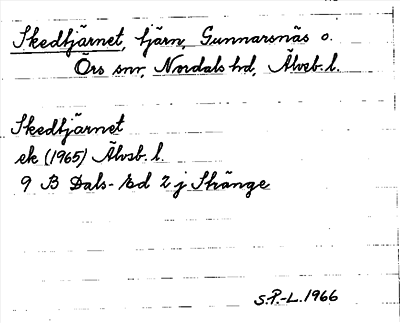 Skedtjärnet, tjärn, Gunnarsnäs o.
Örs snr, Nordals hd, Älvsb. l.
Skedtjärnet
ek (1965) Älvsb. l.
9 B Dals-Ed 2 j Skänge
S.P.-L. 1966